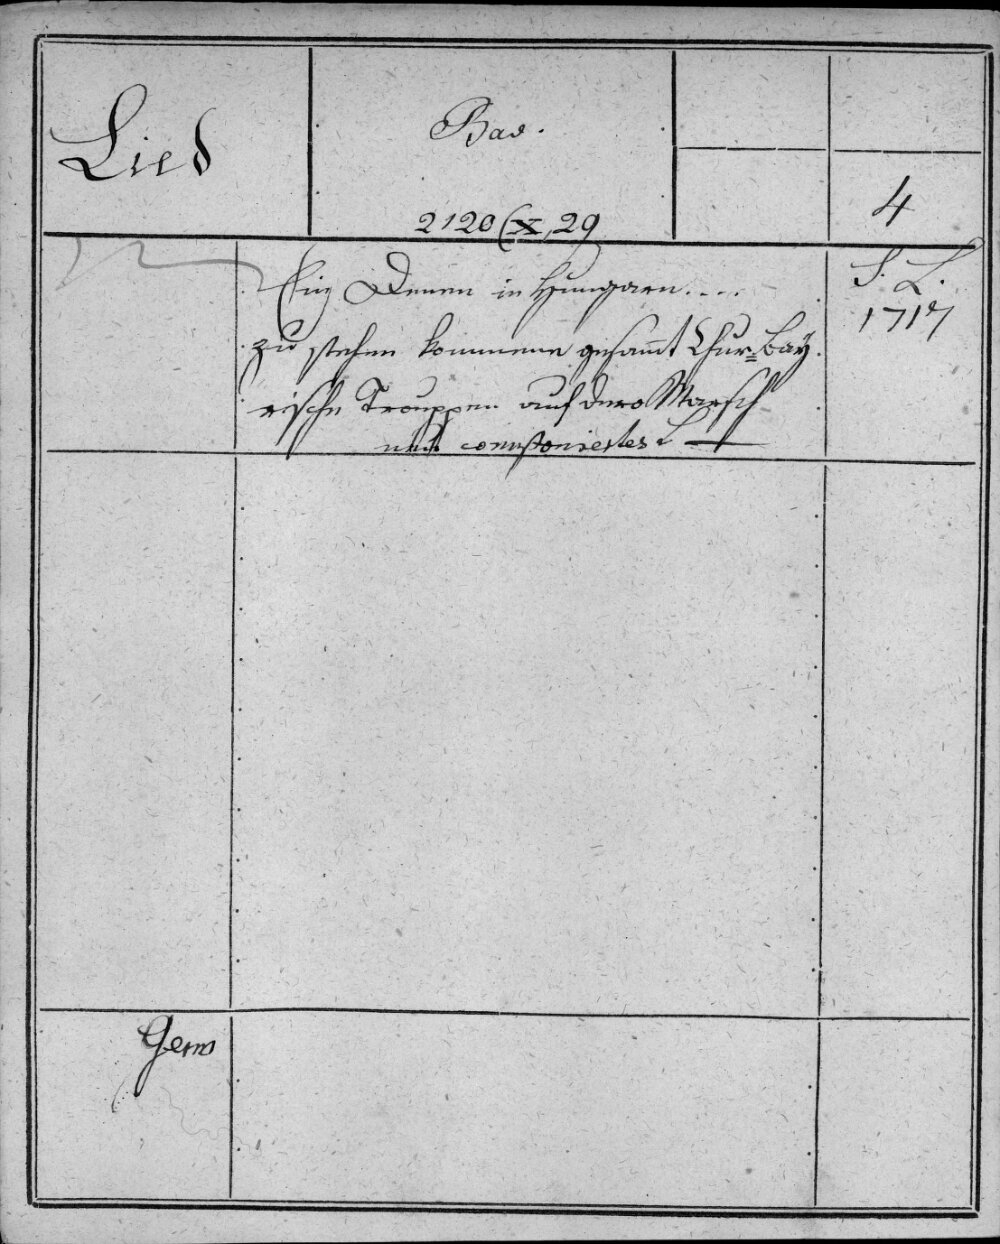 Lied
Bav.
2120 (X, 29
4
Ein Denen in Hungarn....
zu stehen kommene gesammt Chur=Bay
rische Trouppen auf dero Marsch
componiertes L —
S. L.
1717
Germ